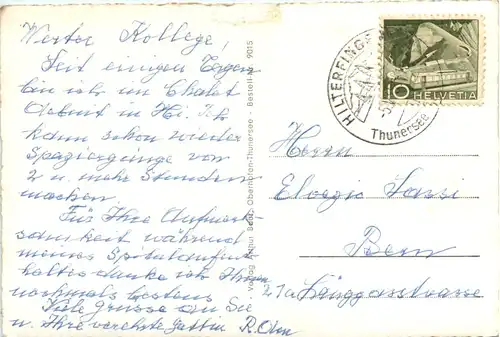 Werter Kollege!
Seit einigen Tagen
bin ich im Chalet
in Hi. Ich
kann schon wieder
Spaziergänge von
2 u. mehr Stunden
machen.
Für Ihre Aufmerk-
samkeit während
meines Spitalaufent-
haltes danke ich Ihnen
nochmals bestens
Viele Grüsse an Sie
u. Ihre verehrte Gattin
Verlag Arthur Oberhofen-Thunersee - Bestell-Nr. 9015
HILTERFINGEN
Thunersee
10 HELVETIA
Herrn
Elvezio
Bern
21a Länggassstrasse